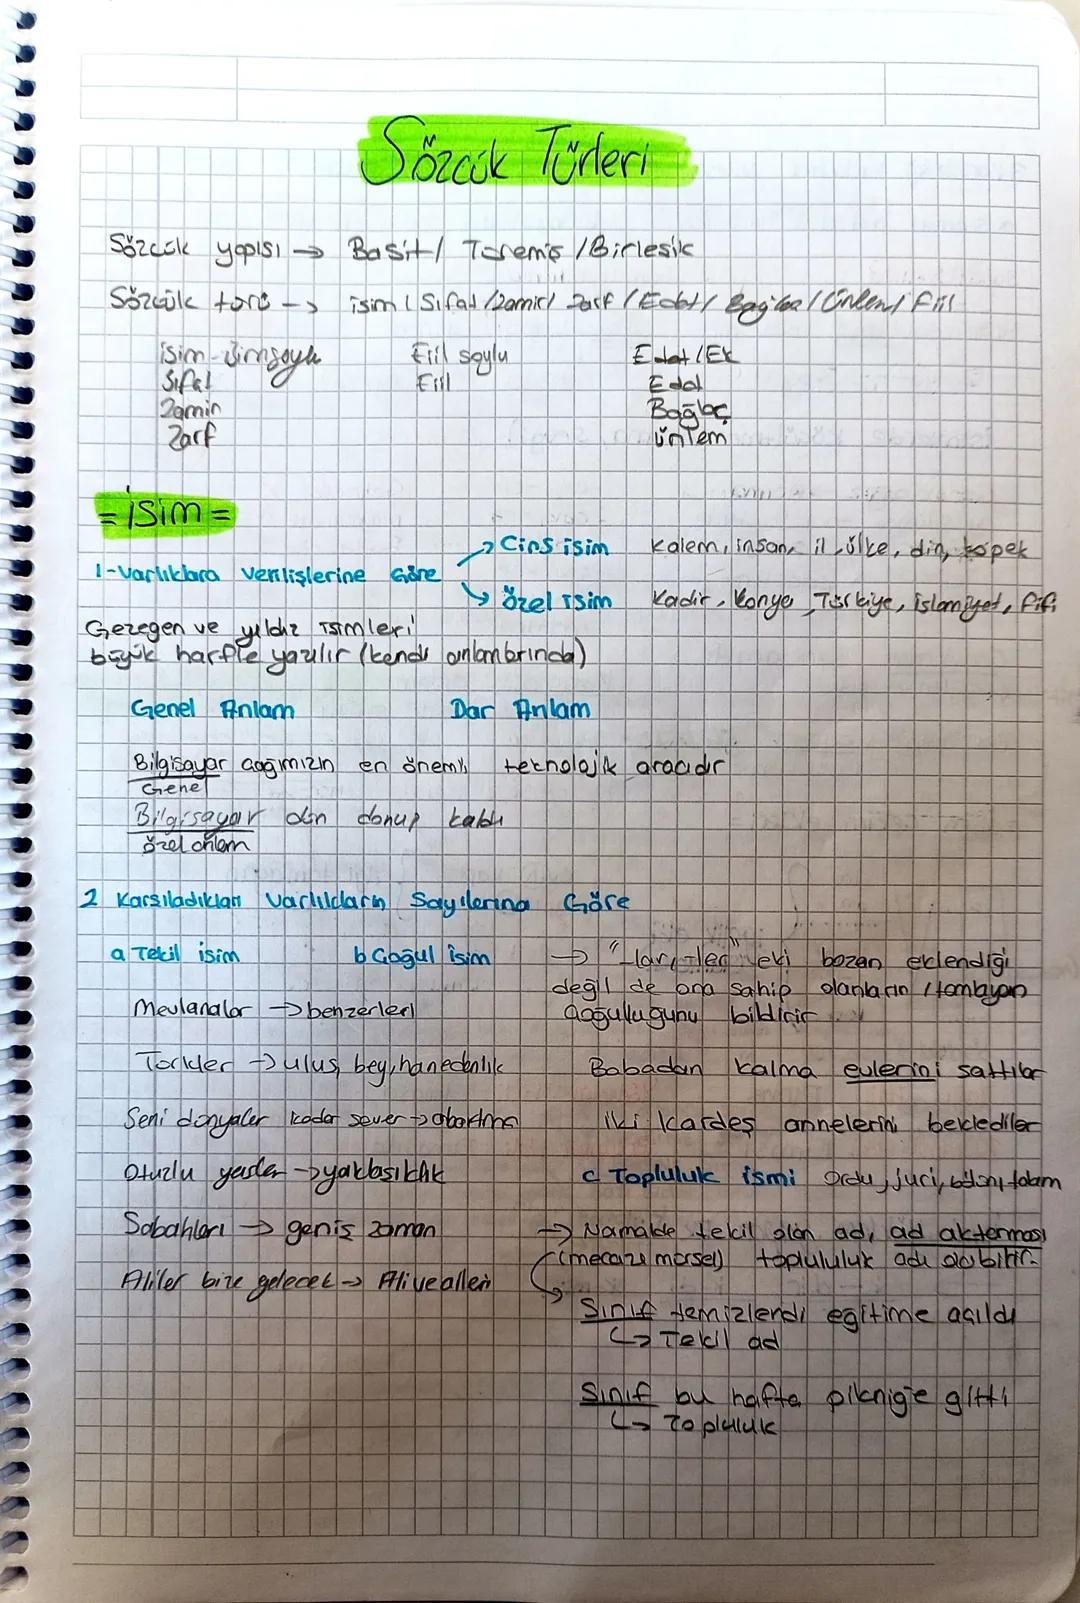 Sözcük Türleri
Sözcük yapısı → Basit / Türemiş / Birleşik
Sözcük türü → isim / Sıfat / Zamir / Zarf / Edat / Bağlaç / Ünlem / Fiil
isim - isimsoylu
Sıfat
Zamir
Zarf
Fiil soylu
Fiil
Edat / Ek
Edat
Bağlaç
ünlem
= isim =
1-Varlıklara Verilişlerine Göre
→ Cins isim Kalem, insan, il, ülke, din, köpek
↳ özel isim Kadir, Konya, Türkiye, islamiyet, fifi
Gezegen ve yıldız isimleri
büyük harfle yazılır (kendi anlamlarında)
Genel Anlam Dar Anlam
Bilgisayar çağımızın en önemli teknolojik aracıdır
Genel
Bilgisayar dün donup kaldı
özel anlam
2 Karşıladıkları Varlıkların Sayılarına Göre
a Tekil isim b Çoğul isim
Mevlanalar → benzerleri
Türkler → ulus, bey, hanedanlık
Seni dünyalar kadar sever → abartma
Otuzlu yaşlar → yaklaşıklık
Sabahları → geniş zaman
Aliler bize gelecek → Ali ve ailesi
→ "-lar, -ler" eki bazen eklendiği
değil de ona sahip olanların / tamlayan
çoğulluğunu bildirir
Babadan kalma evlerini sattılar
iki kardeş annelerini beklediler
c Topluluk ismi Ordu, juri, bölün, takım
→ Normalde tekil olan ad, ad aktarması
(mecazı mürsel) toplululuk adı olabilir.
Sınıf temizlendi eğitime açıldı
↳ Tekil ad
Sınıf bu hafta pikniğe gitti
↳ Topluluk